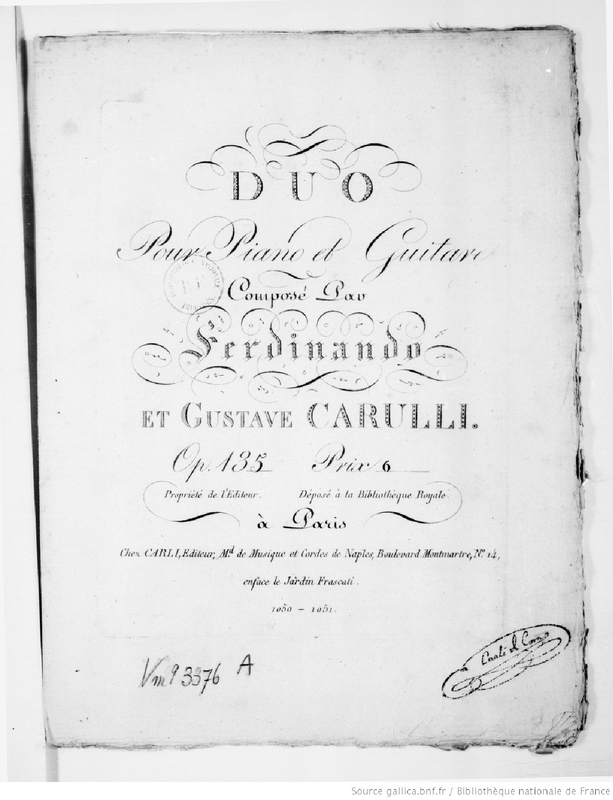 DUO
Pour Piano et Guitare
Composé Par
Ferdinando
ET GUSTAVE CARULLI.
Op. 135 Prix 6
Propriété de l'Editeur. Déposé à la Bibliothèque Royale.
à Paris
Chez CARLI, Editeur, Md. de Musique et Cordes de Naples, Boulevard Montmartre, No. 14,
enface le Jardin Frascati.
1050 - 1051.
Carli et Comp
Vm9 3376 A
Source gallica.bnf.fr / Bibliothèque nationale de France